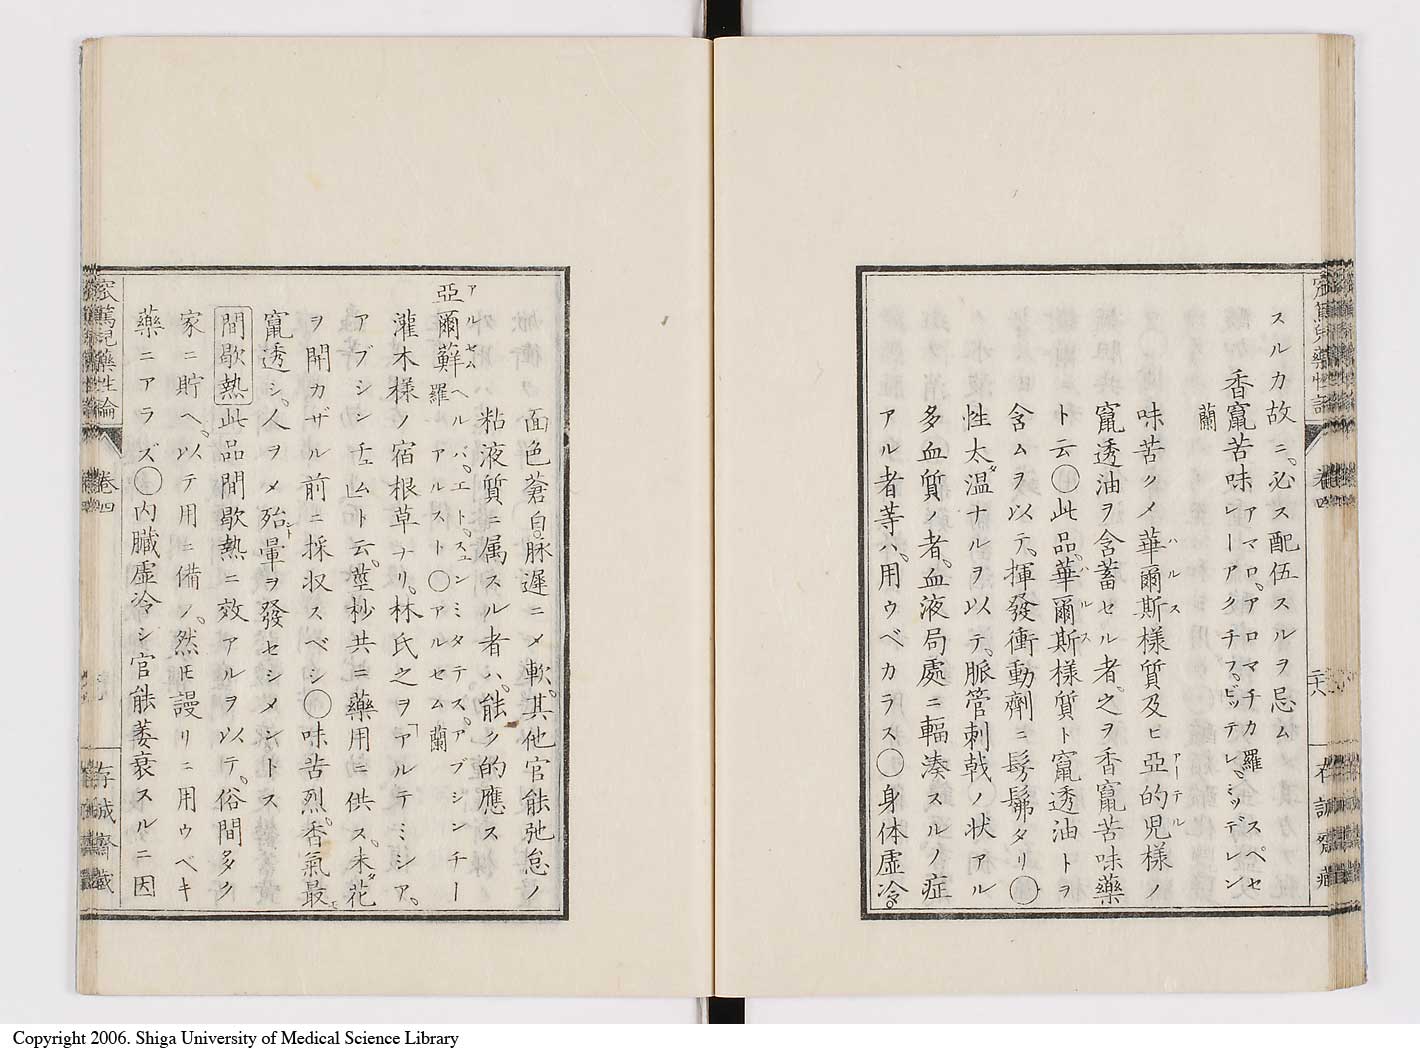 スルカ故ニ。必ス配伍スルヲ忌ム
香竄苦味 アマロ。アロマチカ羅 スペセレーアクチフ。ビッテレ。ミッデレン蘭
味苦クメ華爾斯様質及ヒ亞的児様ノ
ハルス アーテル
竄透油ヲ含蓄セル者。之ヲ香竄苦味藥
ト云〇此品。華爾斯様質ト竄透油トヲ
ハルス
含ムヲ以テ。揮發衝動劑ニ髣髴タリ〇
性太温ナルヲ以テ。脈管刺戟ノ状アル
多血質ノ者。血液局處ニ輻湊スルノ症
アル者等ハ。用ウベカラス〇身体虚冷。
面色蒼白。脉遲ニメ軟。其他官能弛怠ノ
粘液質ニ属スル者ハ。能ク的應ス
亞爾蘚 ヘルバ。エト。スュンミタテス。アブシンチー羅 アルアルスト〇アルセム蘭
アルセム
灌木様ノ宿根草ナリ。林氏之ヲ「アルテミシア。
アブシンチュム」ト云。莖杪共ニ藥用ニ供ス。未タ花
ヲ開カザル前ニ採収スベシ〇味苦烈。香氣最モ
竄透シ。人ヲメ殆ント暈ヲ發セシメントス
間歇熱 此品間歇熱ニ效アルヲ以テ。俗間多ク
家ニ貯ヘ。以テ用ニ備ノ。然𪜈謾リニ用ウベキ
藥ニアラズ〇内臓虚冷シ官能萎衰スルニ因
窊篤兒藥性論
卷四
二十八
存誠齋藏
窊篤兒藥性論
卷四
存誠齋藏
Copyright 2006. Shiga University of Medical Science Library